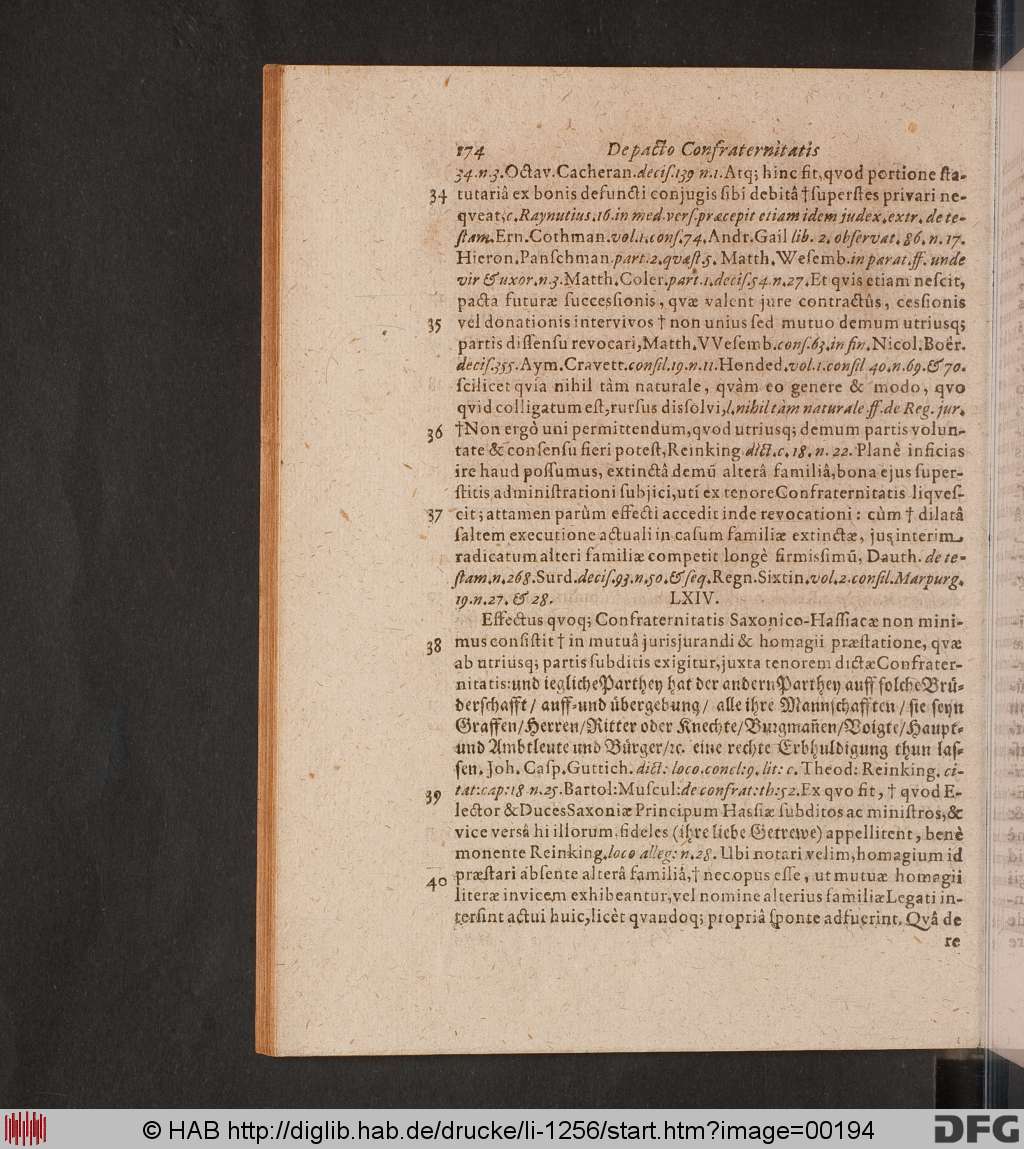 174 De pacto Confraternitatis
34.n.3.Octav.Cacheran.decis.139 n.1.Atq; hinc fit,qvod portione sta-
34 tutariâ ex bonis defuncti conjugis sibi debitâ † superstes privari ne-
qveat,c.Raynutius.16.in med.vers.præcepit etiam idem judex.extr.de te-
stam.Ern.Cothman.vol.1.cons.74.Andr.Gail lib. 2. observat. 86. n. 17.
Hieron.Panschman.part.2.qvæst.5. Matth.Wesemb.in parat.ff. unde
vir & uxor.n.3.Matth.Coler.part.1.decis.54.n.27.Et qvis etiam nescit,
pacta futuræ successionis, qvæ valent jure contractûs, cessionis
35 vel donationis intervivos † non unius sed mutuo demum utriusq;
partis dissensu revocari,Matth.VVesemb.cons.63.in fin.Nicol.Boër.
decis.355.Aym.Cravett.consil.19.n.11.Honded.vol.1.consil 40.n.69.& 70.
scilicet qvia nihil tàm naturale, qvàm eo genere & modo, qvo
qvid colligatum est,rursus dissolvi,l.nihil tàm naturale ff.de Reg. jur.
36 †Non ergò uni permittendum,qvod utriusq; demum partis volun-
tate & consensu fieri potest,Reinking.dict.c.18.n. 22.Planè inficias
ire haud possumus, extinctâ demũ alterâ familiâ,bona ejus super-
stitis administrationi subjici,utì ex tenore Confraternitatis liqves-
37 cit; attamen parùm effecti accedit inde revocationi: cùm † dilatâ
saltem executione actuali in casum familiæ extinctæ, jus interim
radicatum alteri familiæ competit longè firmissimũ, Dauth. de te-
stam.n.268.Surd.decis.93.n.50.& seq.Regn.Sixtin.vol.2.consil.Marpurg.
19.n.27. & 28. LXIV.
Effectus qvoq; Confraternitatis Saxonico-Hassiacæ non mini-
38 mus consistit † in mutuâ jurisjurandi & homagii præstatione, qvæ
ab utriusq; partis subditis exigitur,juxta tenorem dictæ Confrater-
nitatis:und iegliche Parthey hat der andern Parthey auff solche Brü-
derschafft/ auff-und übergebung/ alle ihre Mannschafften/ sie seyn
Graffen/Herren/Ritter oder Knechte/Burgmañen/Voigte/Haupt-
und Ambtleute und Bürger/ꝛc. eine rechte Erbhuldigung thun las-
sen. Joh. Casp.Guttich. dict: loco.concl:9. lit: c. Theod: Reinking. ci-
tat:cap:18 n.25.Bartol:Muscul:de confrat:th:52.Ex qvo fit, † qvod E-
39 lector & Duces Saxoniæ Principum Hassiæ subditos ac ministros,&
vice versâ hi illorum,fideles (ihre liebe Getrewe) appellitent, benè
monente Reinking.loco alleg: n.28. Ubi notari velim,homagium id
40 præstari absente alterâ familiâ,† nec opus esse, ut mutuæ homagii
literæ invicem exhibeantur,vel nomine alterius familiæ Legati in-
tersint actui huic,licèt qvandoq; propriâ sponte adfuerint. Qvâ de
re
© HAB http://diglib.hab.de/drucke/li-1256/start.htm?image=00194
DFG